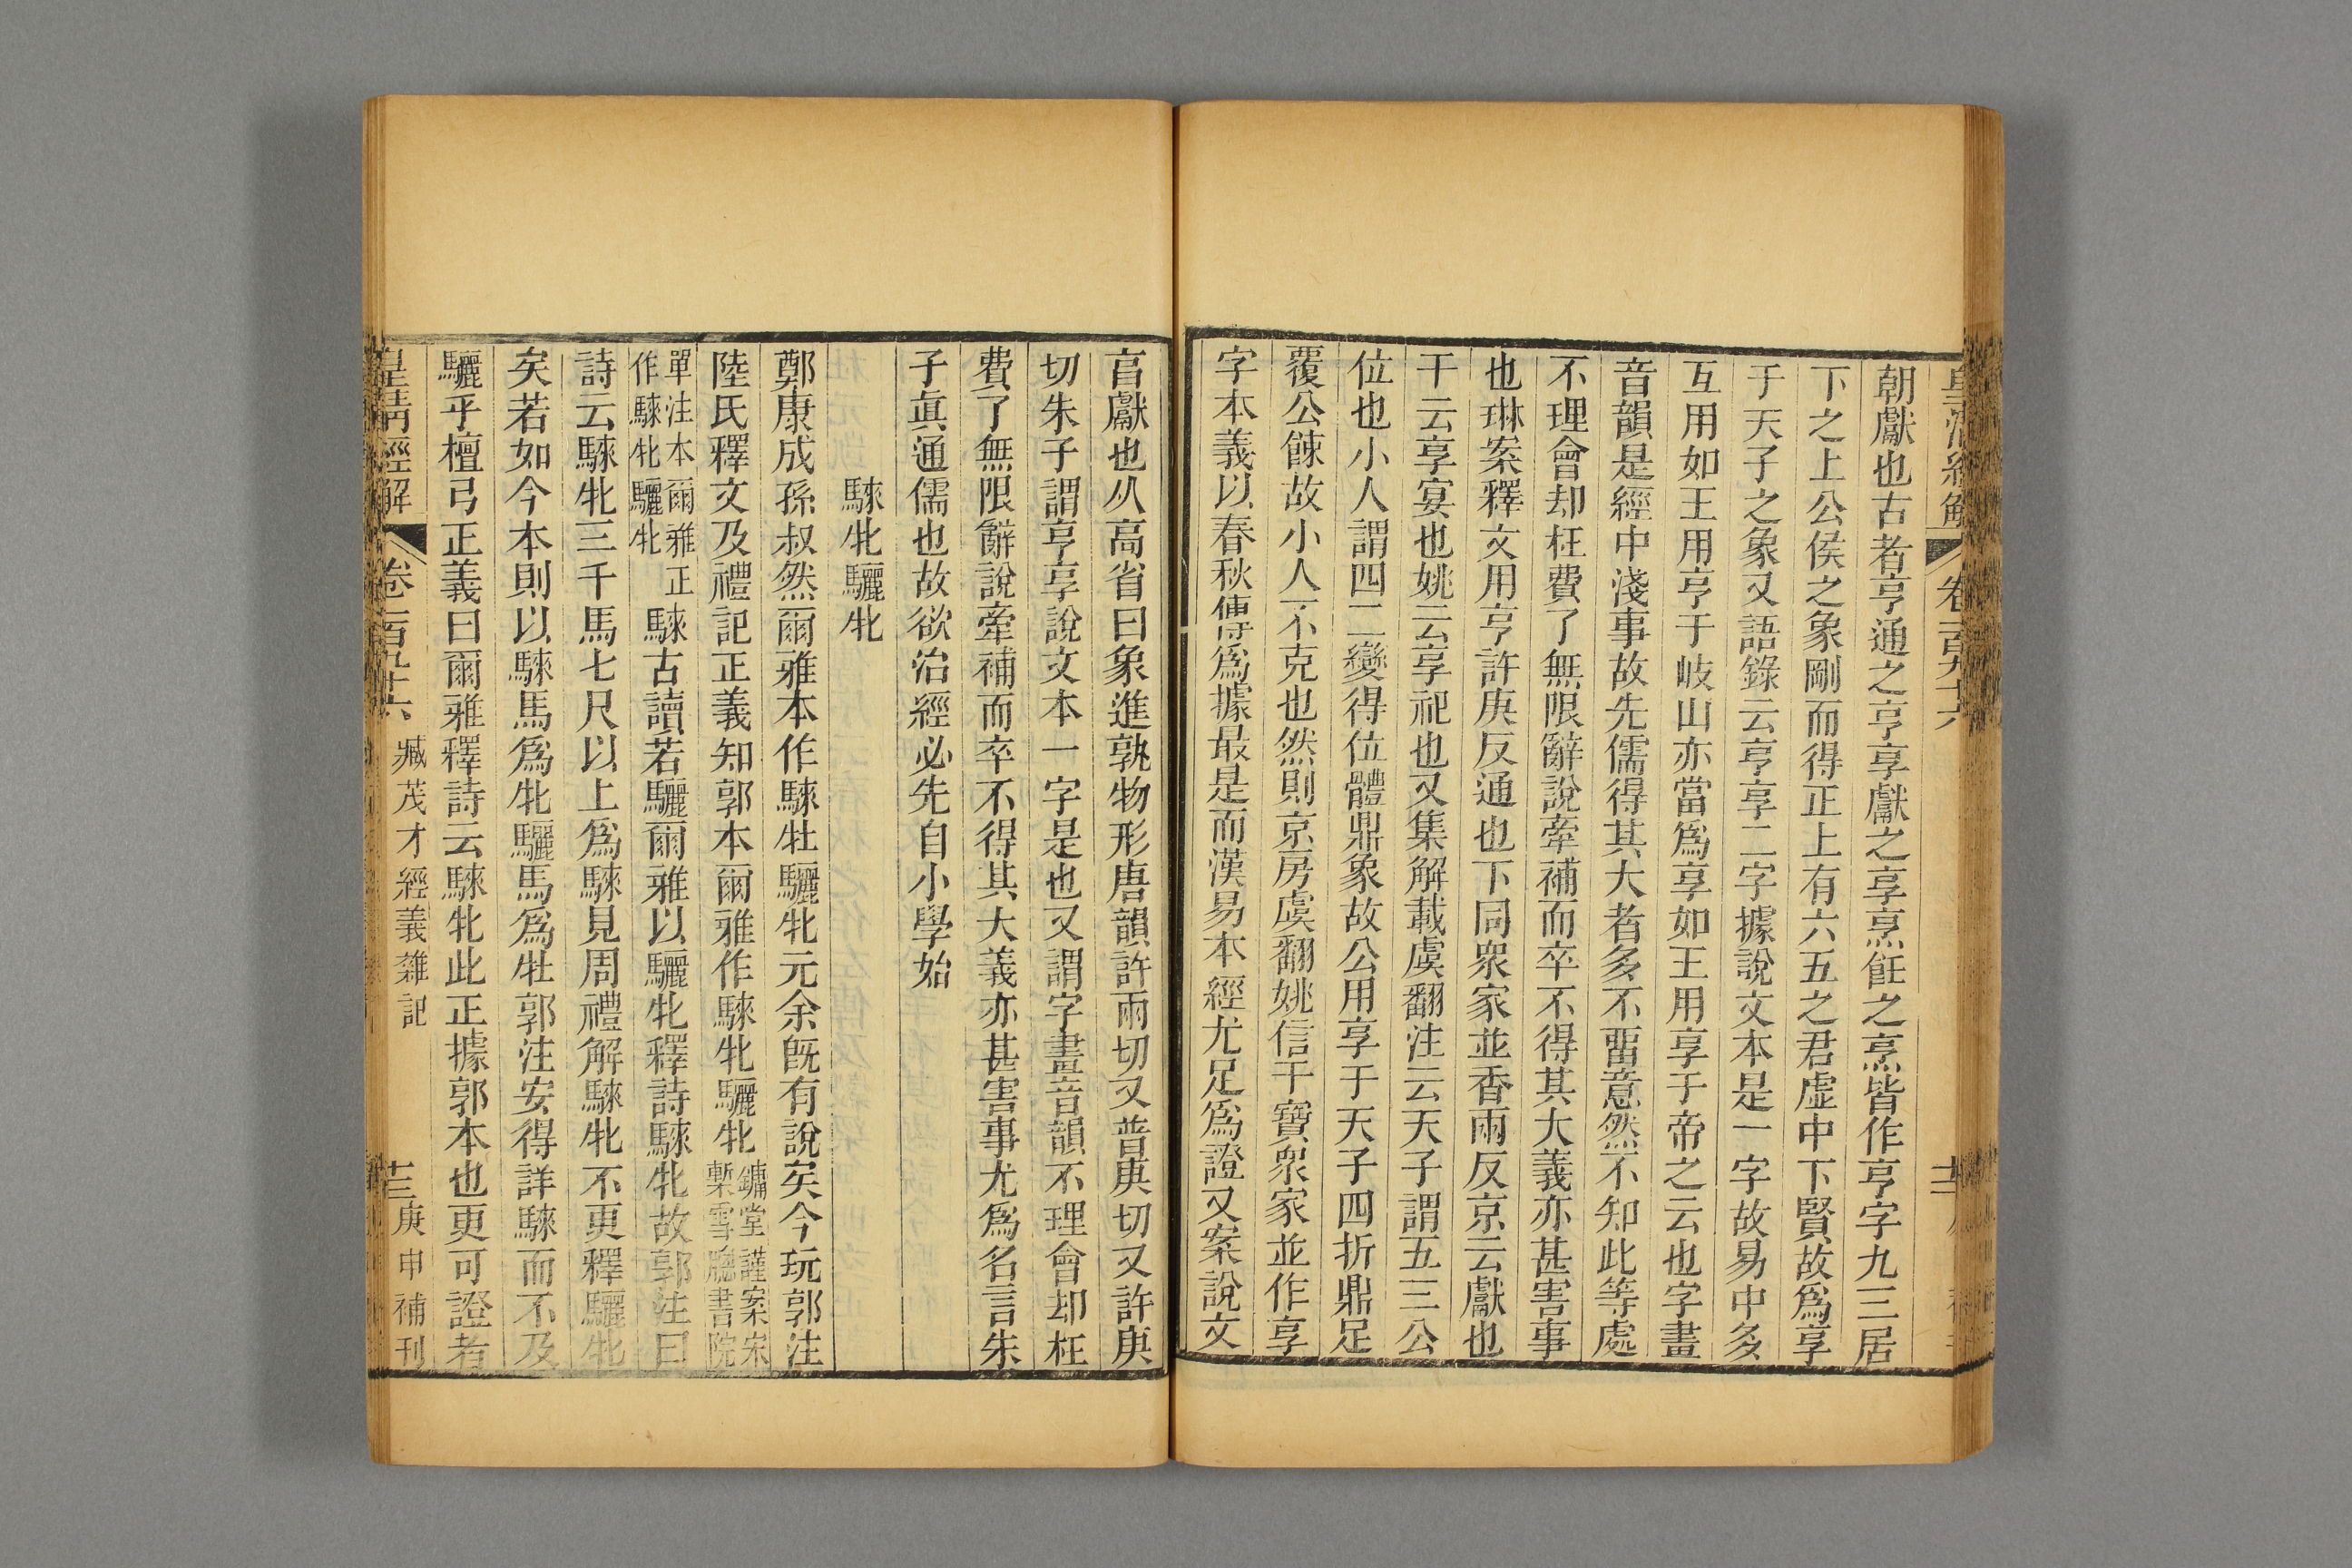 朝獻也古者亨通之亨享獻之享烹飪之烹皆作亨字九三居
下之上公侯之象剛而得正上有六五之君虛中下賢故爲享
于天子之象又語錄云亨享二字據說文本是一字故易中多
互用如王用亨于岐山亦當爲享如王用享于帝之云也字畫
音韻是經中淺事故先儒得其大者多不畱意然不知此等處
不理會却枉費了無限辭說牽補而卒不得其大義亦甚害事
也琳案釋文用亨許庚反通也下同衆家並香兩反京云獻也
干云享宴也姚云享祀也又集解載虞翻注云天子謂五三公
位也小人謂四二變得位體鼎象故公用享于天子四折鼎足
覆公餗故小人不克也然則京房虞翻姚信干寶衆家並作享
字本義以春秋傳爲據最是而漢易本經尤足爲證又案說文
亯獻也从高省曰象進孰物形唐韻許兩切又普庚切又許庚
切朱子謂亨享說文本一字是也又謂字畫音韻不理會却枉
費了無限辭說牽補而卒不得其大義亦甚害事尤爲名言朱
子眞通儒也故欲治經必先自小學始
騋牝驪牝
鄭康成孫叔然爾雅本作騋牡驪牝元余旣有說矣今玩郭注
陸氏釋文及禮記正義知郭本爾雅作騋牝驪牝鏞堂謹案宋槧雪牕書院
單注本爾雅正作騋牝驪牝騋古讀若驪爾雅以驪牝釋詩騋牝故郭注曰
詩云騋牝三千馬七尺以上爲騋見周禮解騋牝不更釋驪牝
矣若如今本則以騋馬爲牝驪馬爲牡郭注安得詳騋而不及
驪乎檀弓正義曰爾雅釋詩云騋牝此正據郭本也更可證者
皇淸經解 卷二百九十六 臧茂才經義雜記 十三 庚申補刊